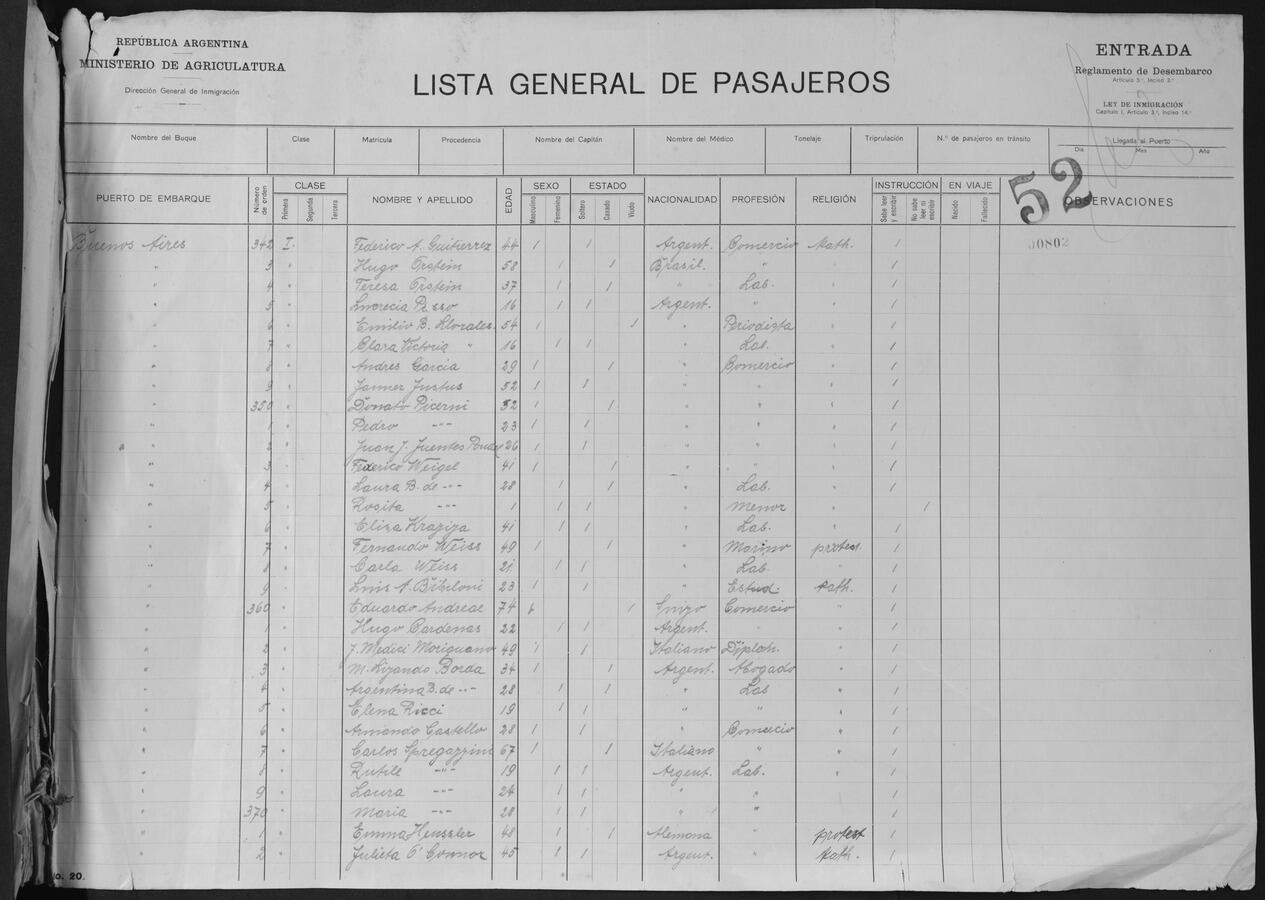 REPÚBLICA ARGENTINA
MINISTERIO DE AGRICULTURA
Dirección General de Inmigración
LISTA GENERAL DE PASAJEROS
ENTRADA
Reglamento de Desembarco
Artículo 5º, Inciso 2º
LEY DE INMIGRACIÓN
Capítulo I, Artículo 3º, Inciso 14º
Nombre del Buque Clase Matrícula Procedencia Nombre del Capitán Nombre del Médico Tonelaje Tripulación N.º de pasajeros en tránsito Llegada al Puerto
Día Mes Año
52
PUERTO DE EMBARQUE Número de orden CLASE Primera Segunda Tercera NOMBRE Y APELLIDO EDAD SEXO Masculino Femenino ESTADO Soltero Casado Viudo NACIONALIDAD PROFESIÓN RELIGIÓN INSTRUCCIÓN Sabe leer y escribir No sabe leer ni escribir EN VIAJE Nacido Fallecido OBSERVACIONES
Buenos Aires 342 I. Federico A. Guitierrez 44 1 1 Argent. Comercio Kath. 1 00802
" 3 " Hugo Orstein 58 1 1 Brasil. " " 1
" 4 " Teresa Orstein 37 1 1 " Lab. " 1
" 5 " Lucrecia 16 1 1 Argent. " " 1
" 6 " Emilio B. Llorales. 54 1 1 " Periodista " 1
" 7 " Clara Victoria " 16 1 1 " Lab. " 1
" 8 " Andres Garcia 29 1 1 " Comercio " 1
" 9 " Justus 52 1 1 " " " 1
" 350 " Donato Picerni 52 1 1 " " " 1
" 1 " Pedro -"- 23 1 1 " " " 1
" 2 " Juan J. Fuentes 26 1 1 " " " 1
" 3 " Federico Weigel 41 1 1 " " " 1
" 4 " Laura B. de -"- 28 1 1 " Lab. " 1
" 5 " Rosita -"- 1 1 1 " Menor " 1
" 6 " Elisa 41 1 1 " Lab. " 1
" 7 " Fernando Weiss 49 1 1 " Marino protest. 1
" 8 " Carla Weiss 21 1 1 " Lab. " 1
" 9 " Luis A. Bibiloni 23 1 1 " Estud. Kath. 1
" 360 " Eduardo Andreae 74 1 1 Suizo Comercio " 1
" 1 " Hugo Cardenas 22 1 1 Argent. " " 1
" 2 " J. Medici 49 1 1 Italiano Diplom. " 1
" 3 " M. Lizando Borda 34 1 1 Argent. Abogado " 1
" 4 " Argentina B. de -"- 28 1 1 " Lab " 1
" 5 " Elena Ricci 19 1 1 " " " 1
" 6 " Armando Castello 28 1 1 " Comercio " 1
" 7 " Carlos Spregazzini 67 1 1 Italiano " " 1
" 8 " Rutile -"- 19 1 1 Argent. Lab. " 1
" 9 " Laura -"- 24 1 1 " " " 1
" 370 " Maria -"- 28 1 1 " " 1
" 1 " Emma Heussler 48 1 1 Alemana " protest 1
" 2 " Julieta O'Connor 45 1 1 Argent. " Kath. 1
No. 20.